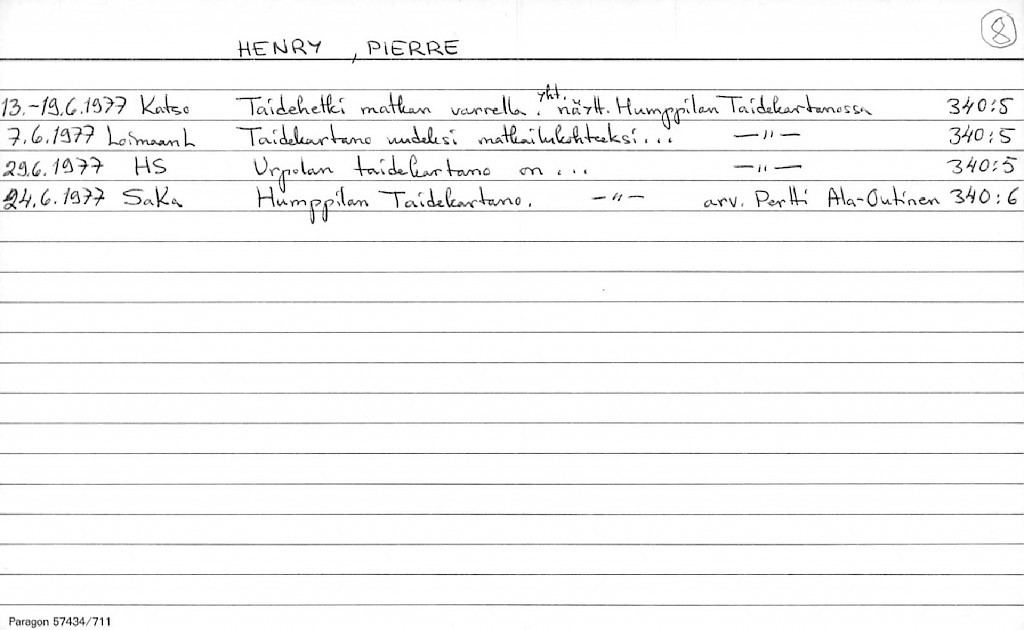 8
HENRY, PIERRE
13.-19.6.1977 Katso Taidehetki matkan varrella. yht. näytt. Humppilan Taidekartanossa 340:5
7.6.1977 LoimaanL Taidekartano uudeksi matkailukohteeksi... —"— 340:5
29.6.1977 HS Urpolan taidekartano on ... —"— 340:5
24.6.1977 SaKa Humppilan Taidekartano. —"— arv. Pertti Ala-Outinen 340:6
Paragon 57434/711